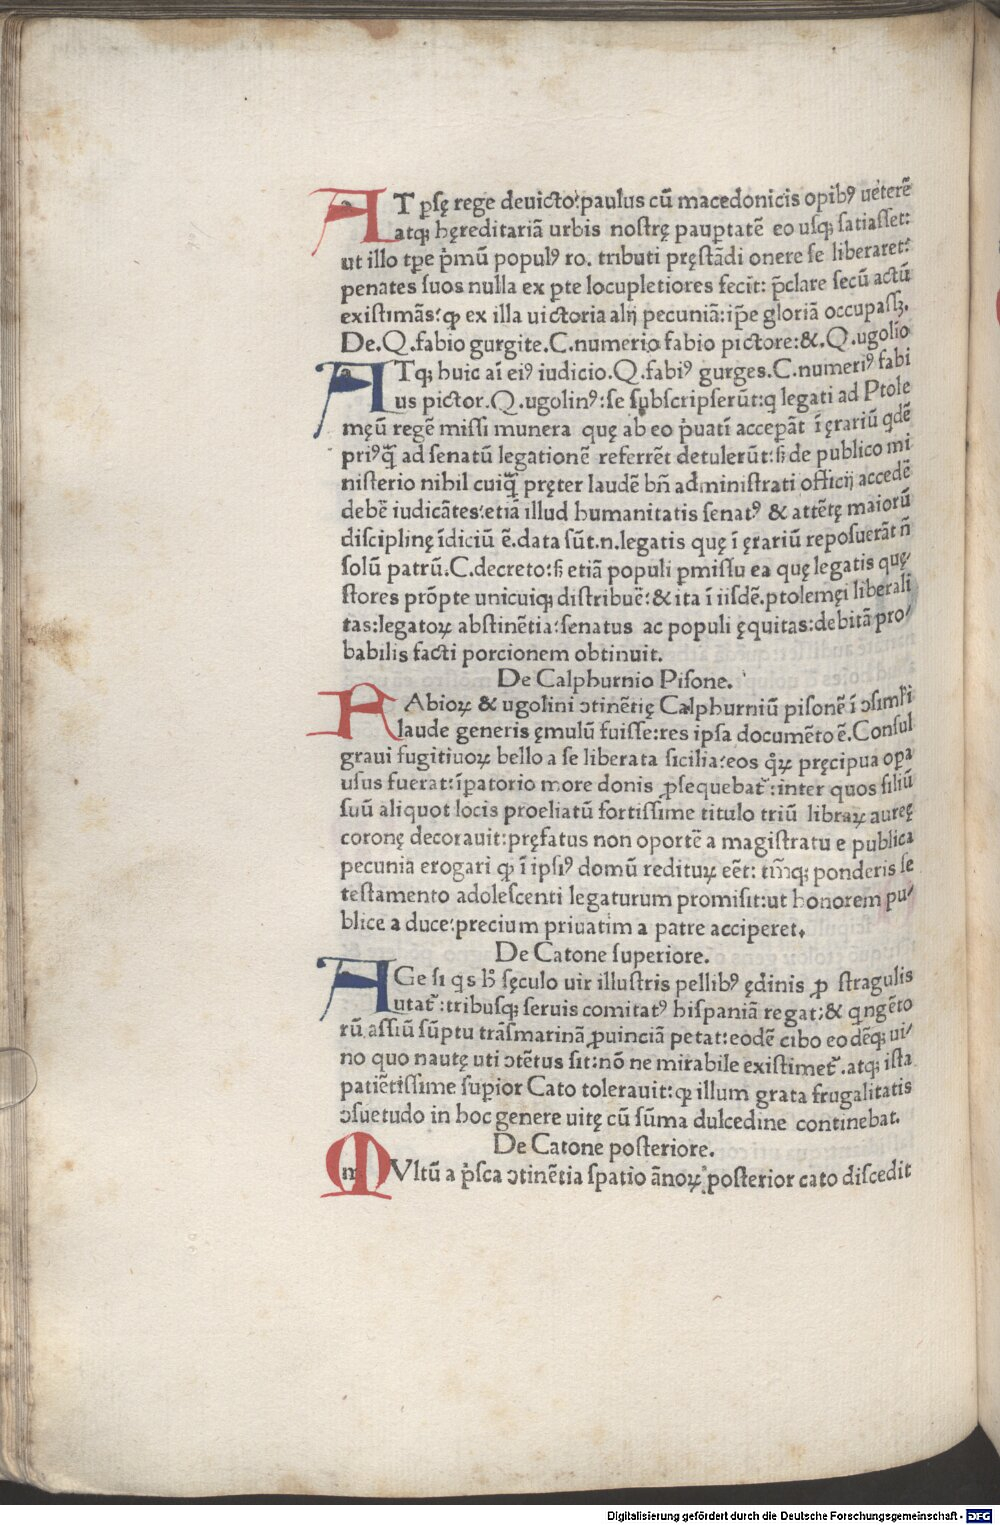 AT ꝑsę rege deuicto:paulus cū macedonicis opibꝰ ueterē
atqꝫ hęreditariā urbis nostrę pauꝑtatē eo usqꝫ satiasset:
ut illo tꝑe p̓mū populꝰ ro. tributi pręstādi onere se liberaret:
penates suos nulla ex ꝑte locupletiores fecit: p̄clare secū actū
existimās:ꝙ ex illa uictoria alij pecuniā:ip̄e gloriā occupassꝫ.
De.Q.fabio gurgite.C.numerio fabio pictore:&.Q.ugolio
ATqꝫ huic aī eiꝰ iudicio.Q.fabiꝰ gurges.C.numeriꝰ fabi
us pictor.Q.ugolinꝰ:se subscripserūt:q legati ad Ptole
męū regē missi munera quę ab eo p̓uatī acceꝑāt ī ęrariū qdē
priꝰq̄̃ ad senatū legationē referrēt detulerūt:ß de publico mi
nisterio nihil cuiq̄̃ pręter laudē bn̄ administrati officij accedē
debē iudicātes:etiā illud humanitatis senatꝰ & attētę maiorū
disciplinę īdiciū ē.data sūt.n.legatis quę ī ęrariū reposuerāt n̄
solū patrū.C.decreto:ß etiā populi ꝑmissu ea quę legatis quę⸗
stores prōpte unicuiqꝫ distribuē:& ita ī iisdē.ptolemęi liberali
tas:legatoꝝ abstinētia:senatus ac populi ęquitas:debitā pro⸗
babilis facti porcionem obtinuit.
De Calphurnio Pisone.
RAbioꝝ & ugolini ↄtinētię Calphurniū pisonē ī ↄsimli
laude generis ęmulū fuisse:res ipsa documēto ē.Consul
graui fugitiuoꝝ bello a se liberata sicilia:eos qꝝ pręcipua oꝑa
usus fuerat:īꝑatorio more donis ꝓsequebat᷑:inter quos filiū
suū aliquot locis proeliatū fortissime titulo triū libraꝝ aureę
coronę decorauit:pręfatus non oportē a magistratu e publica
pecunia erogari ꝙ ī ipsiꝰ domū redituꝝ eēt: tm̄qꝫ ponderis se
testamento adolescenti legaturum promisit:ut honorem pu⸗
blice a duce:precium priuatim a patre acciperet.
De Catone superiore.
AGe si qs h̓ sęculo uir illustris pellibꝰ ędinis ꝓ stragulis
utat᷑:tribusqꝫ seruis comitatꝰ hispaniā regat:& qngēto
rū assiū sūptu trāsmarinā ꝓuinciā petat:eodē cibo eodēqꝫ ui⸗
no quo nautę uti ↄtētus sit:nō ne mirabile existimet᷑.atqꝫ ista
patiētissime suꝑior Cato tolerauit:ꝙ illum grata frugalitatis
ↄsuetudo in hoc genere uitę cū sūma dulcedine continebat.
De Catone posteriore.
MVltū a p̓sca ↄtinētia spatio ānoꝝ posterior cato discedit
Digitalisierung gefördert durch die Deutsche Forschungsgemeinschaft - DFG